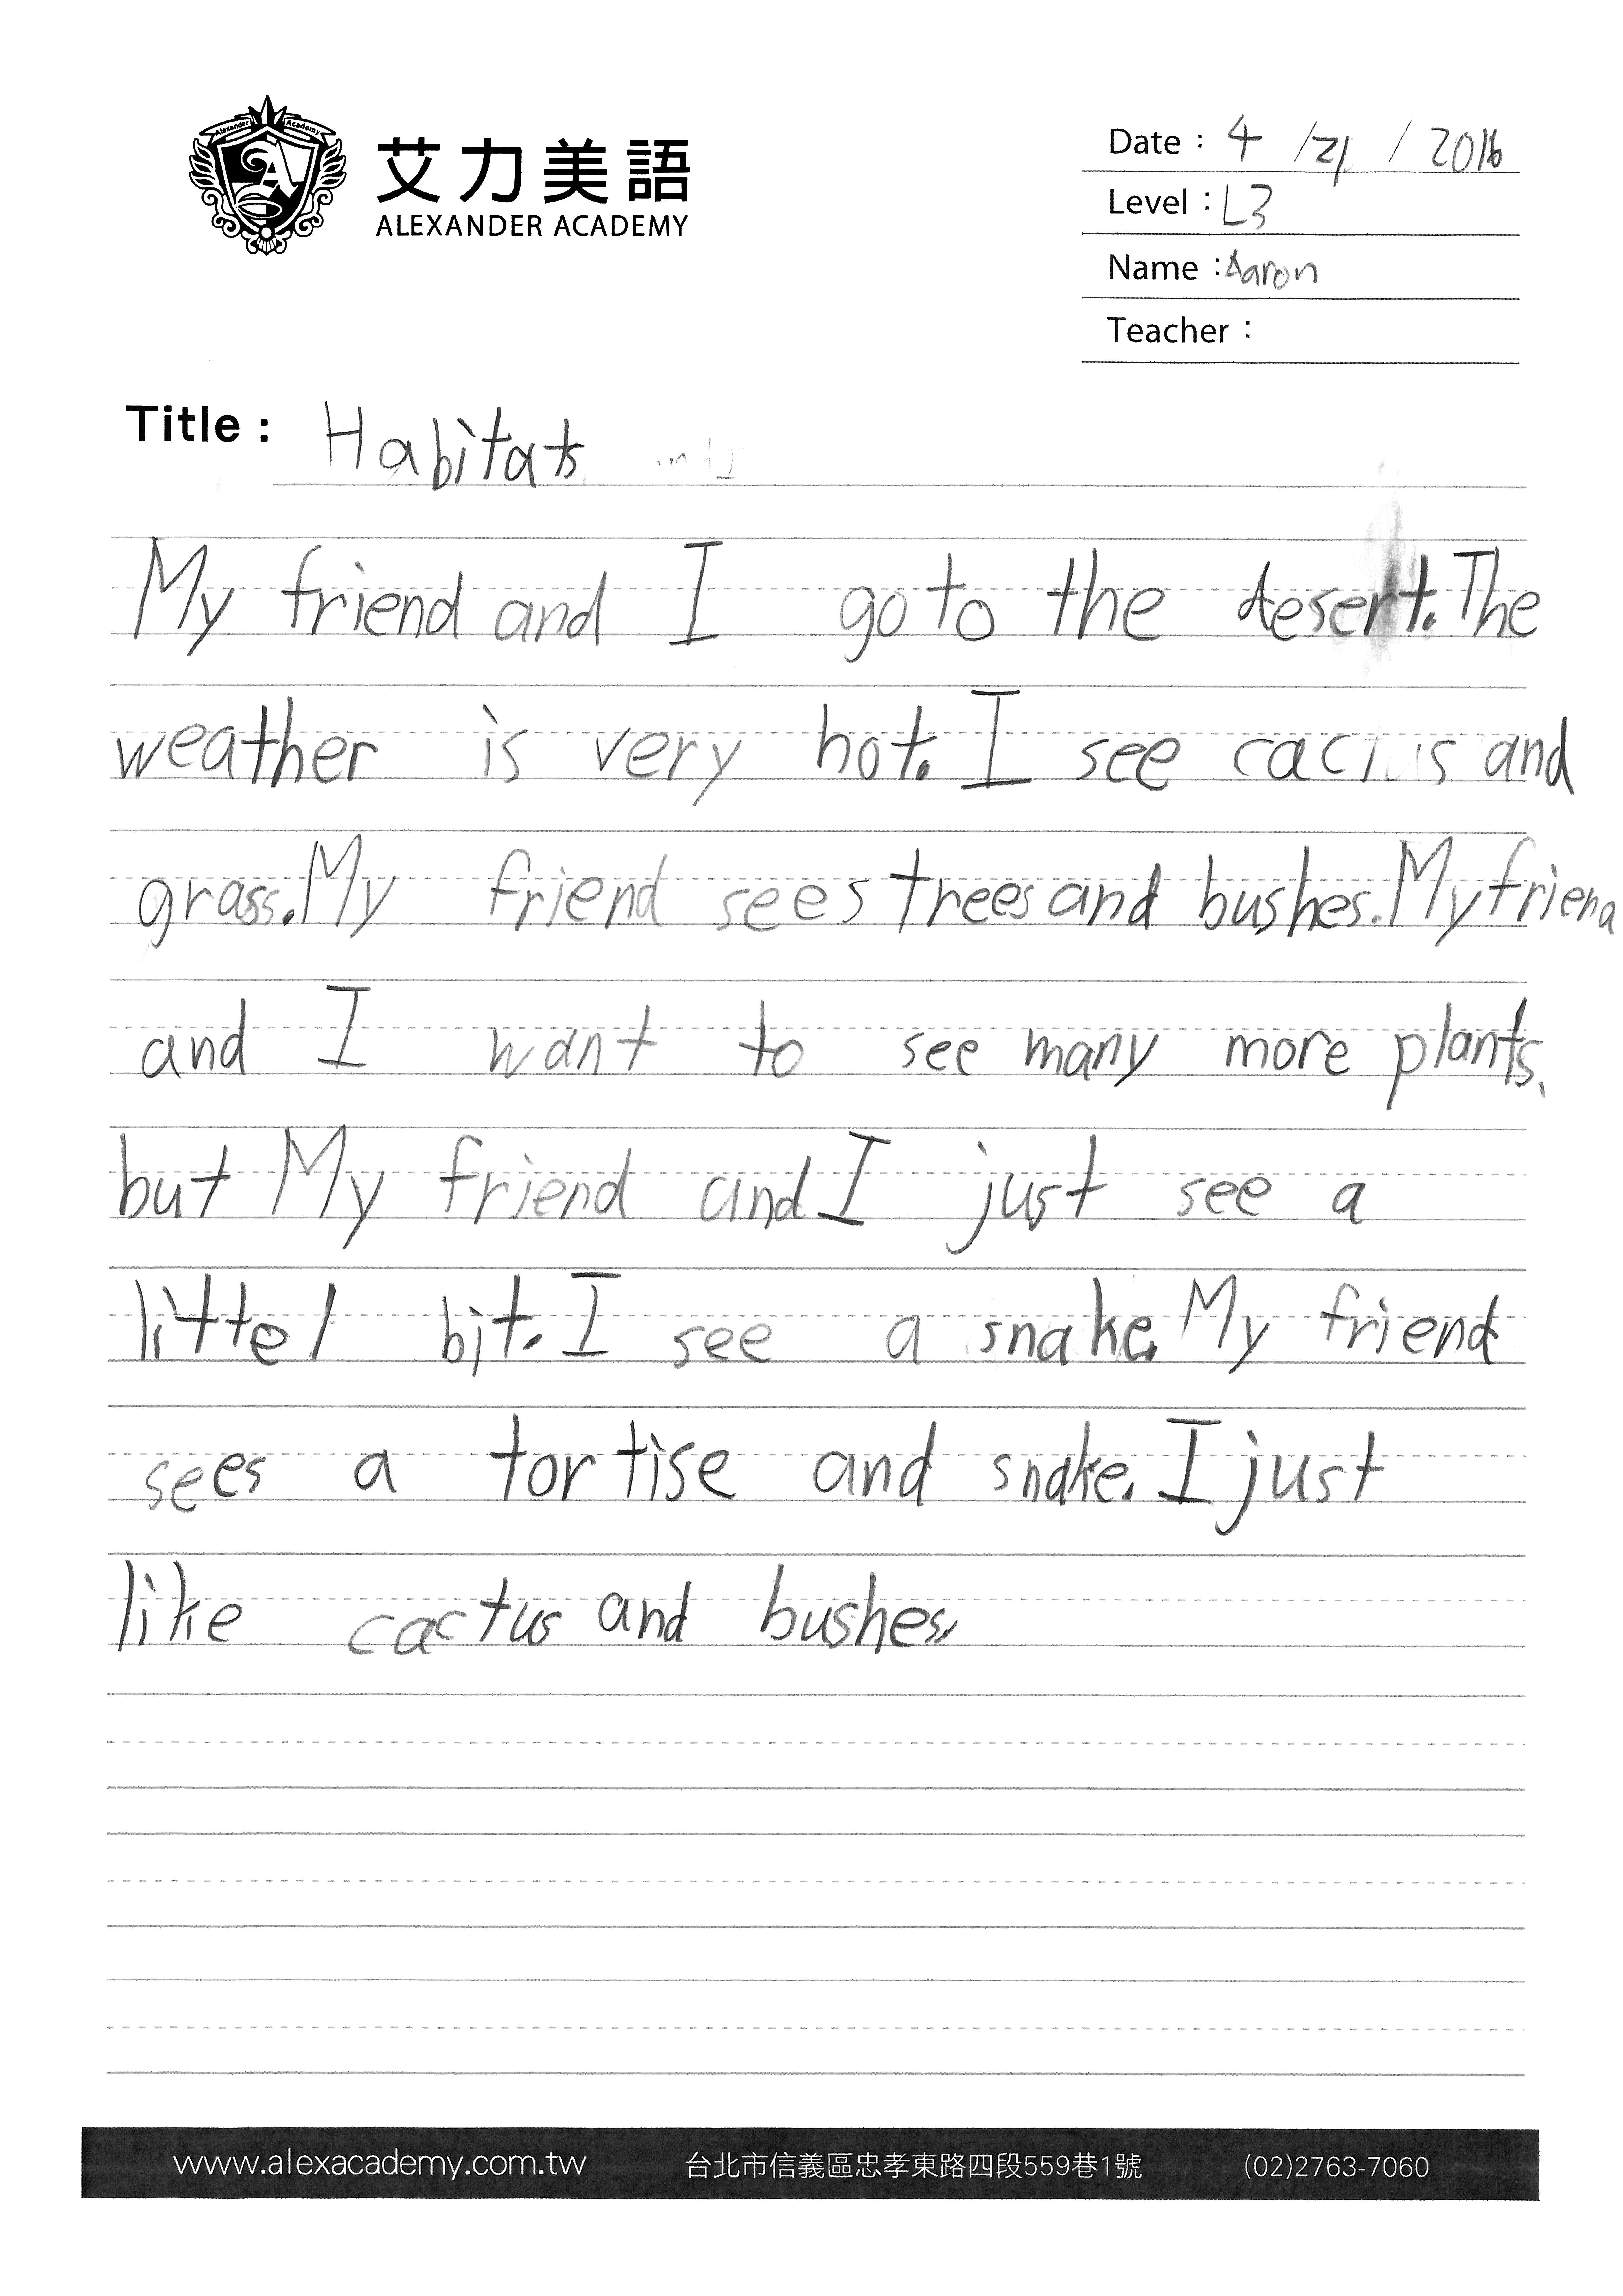 Alexander Academy
艾力美語
ALEXANDER ACADEMY
Date : 4 / 21 / 2016
Level : L3
Name : Aaron
Teacher :
Title : Habitats
My friend and I go to the desert. The
weather is very hot. I see cactus and
grass. My friend sees trees and bushes. My friend
and I want to see many more plants,
but My friend and I just see a
littel bit. I see a snake. My friend
sees a tortise and snake. I just
like cactus and bushes.
www.alexacademy.com.tw 台北市信義區忠孝東路四段559巷1號 (02)2763-7060